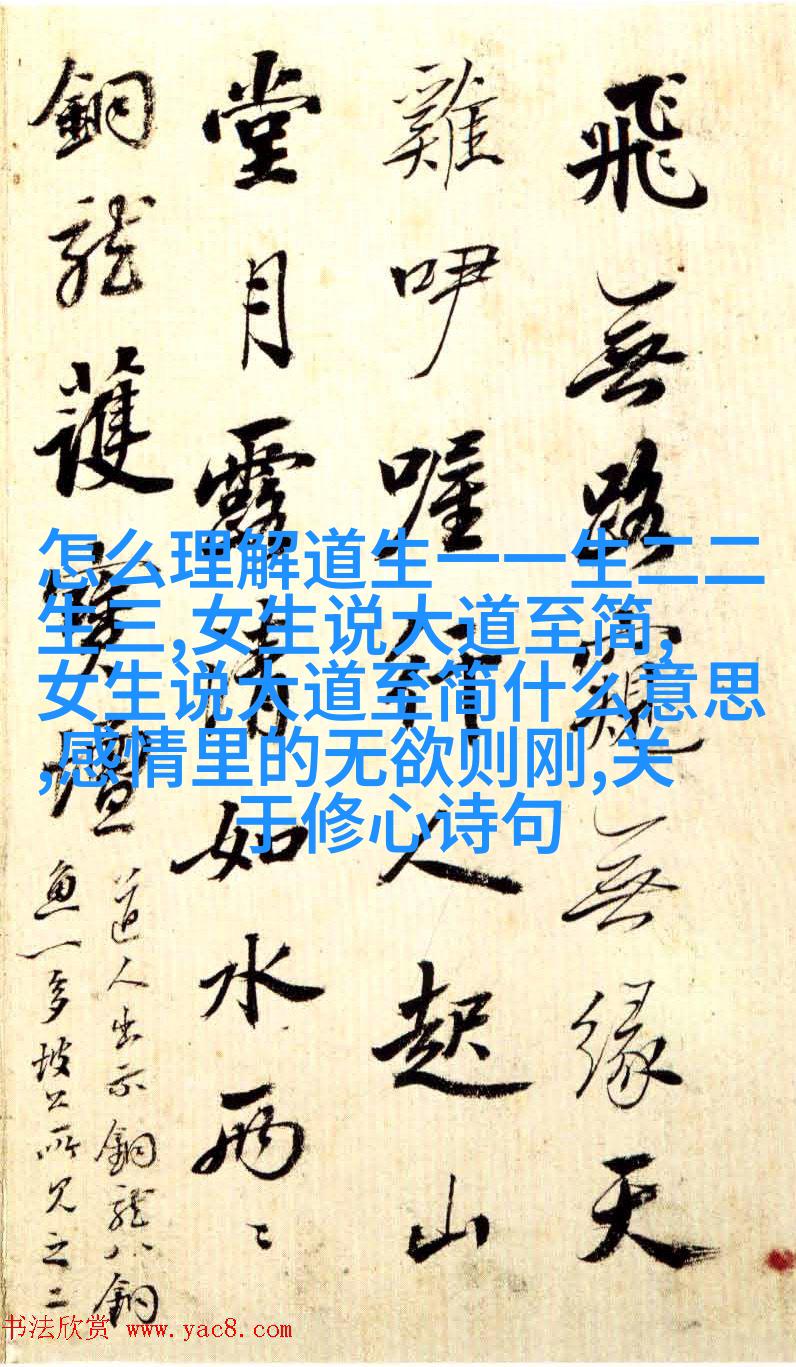 飛無路窺無緣天
雞咿喔人起山
堂月露清如水兩〻
銅龍護寶壇
道人出示銅龍八銅
魚一多坡公所見之二
怎么理解道生一一生二二
生三,女生说大道至简,
女生说大道至简什么意思
,感情里的无欲则刚,关
于修心诗句
书法欣赏 www.yac8.com